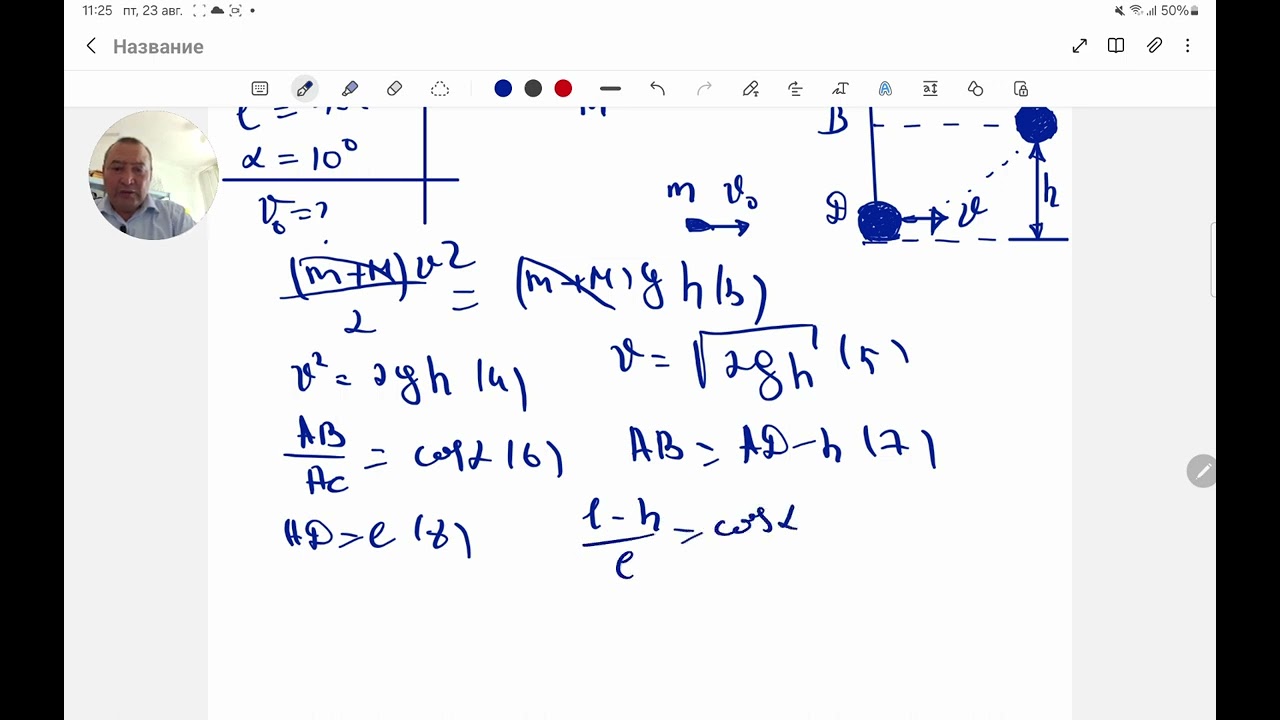 11:25 пт, 23 авг.
50%
Название
α = 10°
υ₀ = ?
m υ₀
B
D
υ
h
(m+M)υ²/2 = (m+M)gh (3)
υ² = 2gh (4) υ = √2gh (5)
AB/AC = cosα (6) AB = AD - h (7)
AD = l (8) l - h/l = cosα